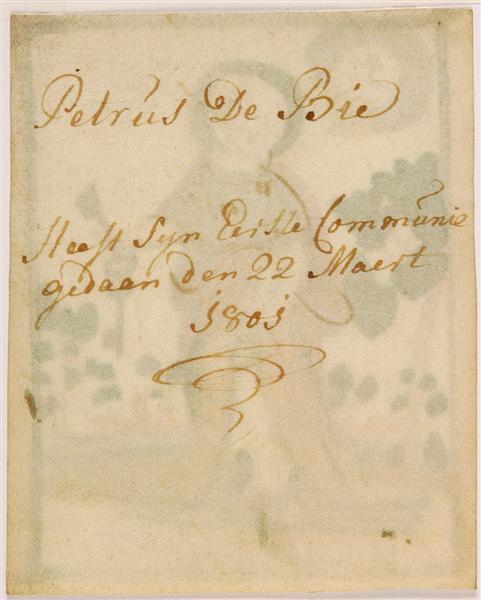 Petrus De Bie
Heeft Syn Eerste Communie
gedaan den 22 Maert
1801